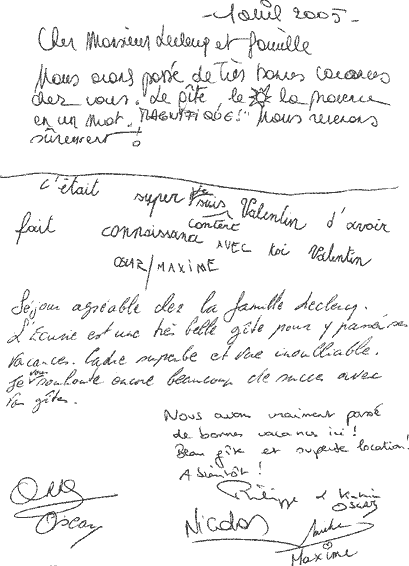 - 1 avril 2005 -
Cher Monsieur Leclercq et famille
Nous avons passé de très bonnes vacances
chez vous. Le gîte, le ☼ la provence
en un mot. MAGNIFIQUE! Nous revenons
sûrement!
c'était super je suis Valentin d'avoir
fait connaissance content AVEC toi Valentin
OSCAR/MAXIME
Séjour agréable chez la famille Leclercq.
L'Ecurie est une très belle gîte pour y passer ses
vacances. Cadre superbe et vue inoubliable.
Je vous souhaite encore beaucoup de succes avec
vos gîtes.
Nous avons vraiment passé
de bonnes vacances ici!
Beau gîte et superbe location!
A bientôt!
Philippe et
OSCAR
Oscar
Nicolas
Maxime